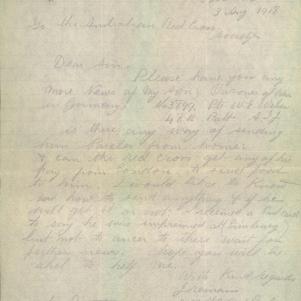 3 Aug 1918
To the Australian Red Cross
Dear Sir,
Please have you any
more News of My Son Prisoner of War
in Germany Pte W. E.
48th Batt A.I.F.
is there any way of sending
him Parcles from home
& can the red cross get any of his
Pay from London to send food
to him. I would like to Know
how to send anything & if he
will get it or not. I received a Red Card
to say he was imprisoned at Limburg
but not to ancer to there wait for
further news. hope you will be
abel to help me.
With Kind regards
I remain